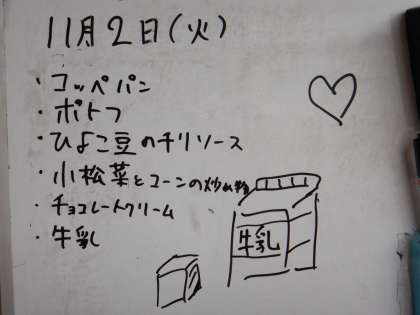 11月2日(火)
・コッペパン
・ポトフ
・ひよこ豆のチリソース
・小松菜とコーンの炒め物
・チョコレートクリーム
・牛乳
牛乳